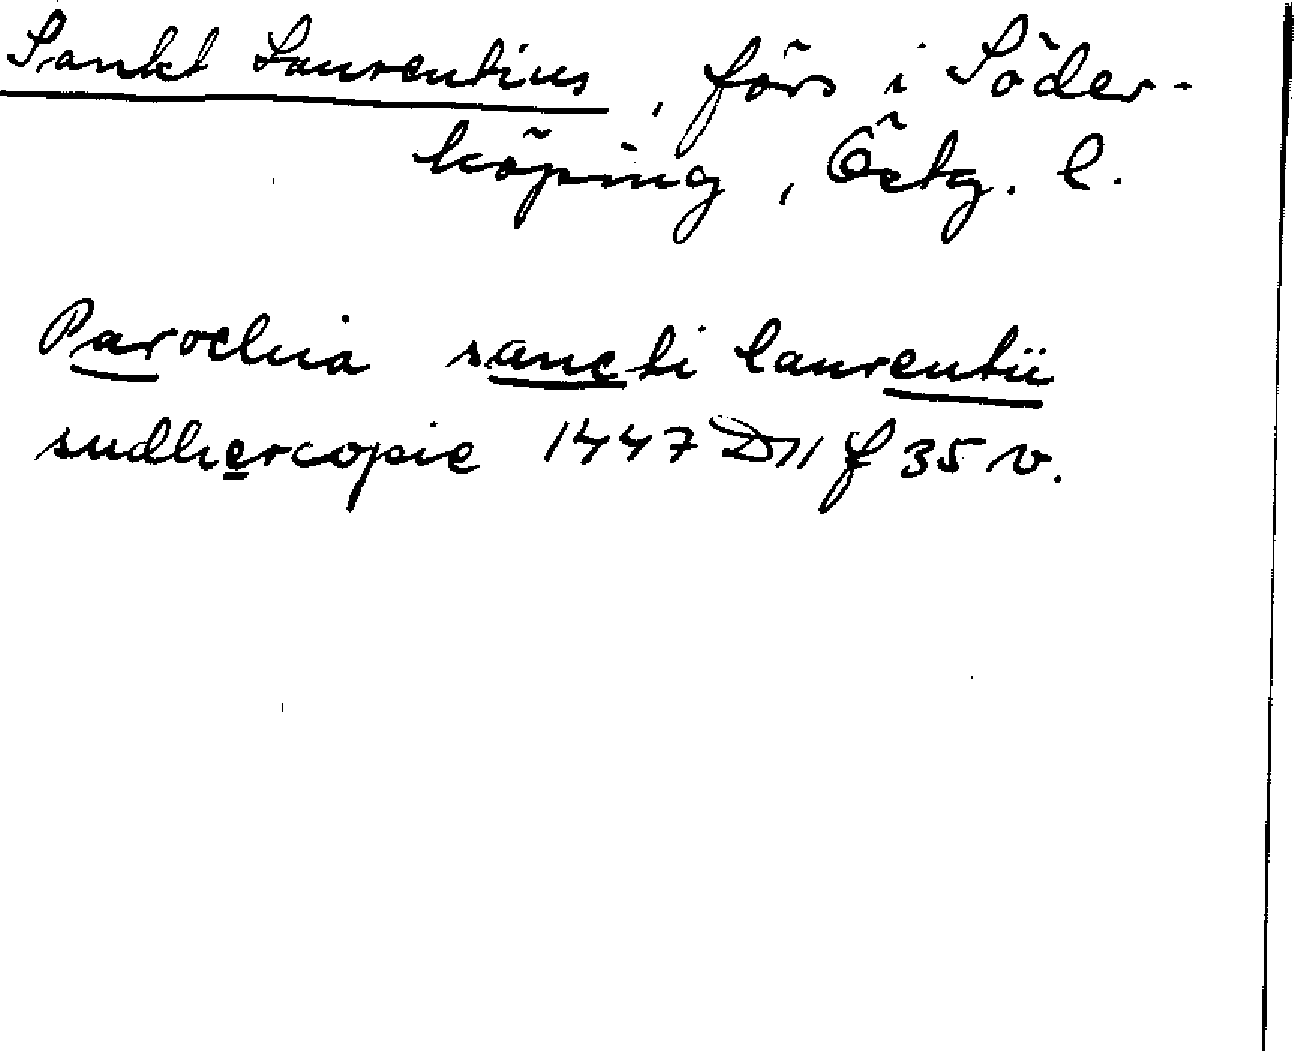 Sankt Laurentius, förs i Söder-
köping, Östg. l.
Parochia sancti laurentii
sudhercopie 1447 D11 f 35 v.